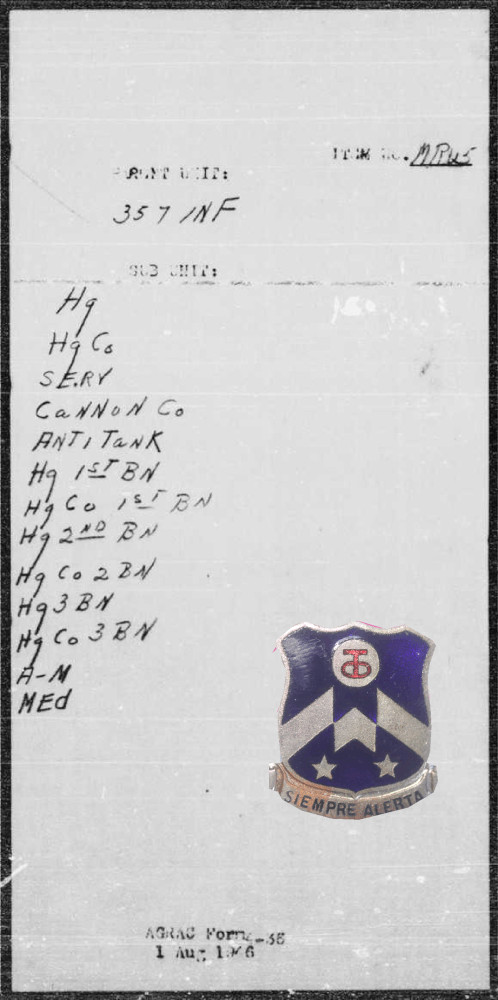 ITEM NO. MRU5
PARENT UNIT:
357 INF
SUB UNIT:
Hq
Hq Co
SERV
CANNON Co
ANTI TANK
Hq 1ST BN
Hq Co 1ST BN
Hq 2ND BN
Hq Co 2 BN
Hq 3 BN
Hq Co 3 BN
A-M
MEd
TO
SIEMPRE ALERTA
AGRAC Form -36
1 Aug 1946